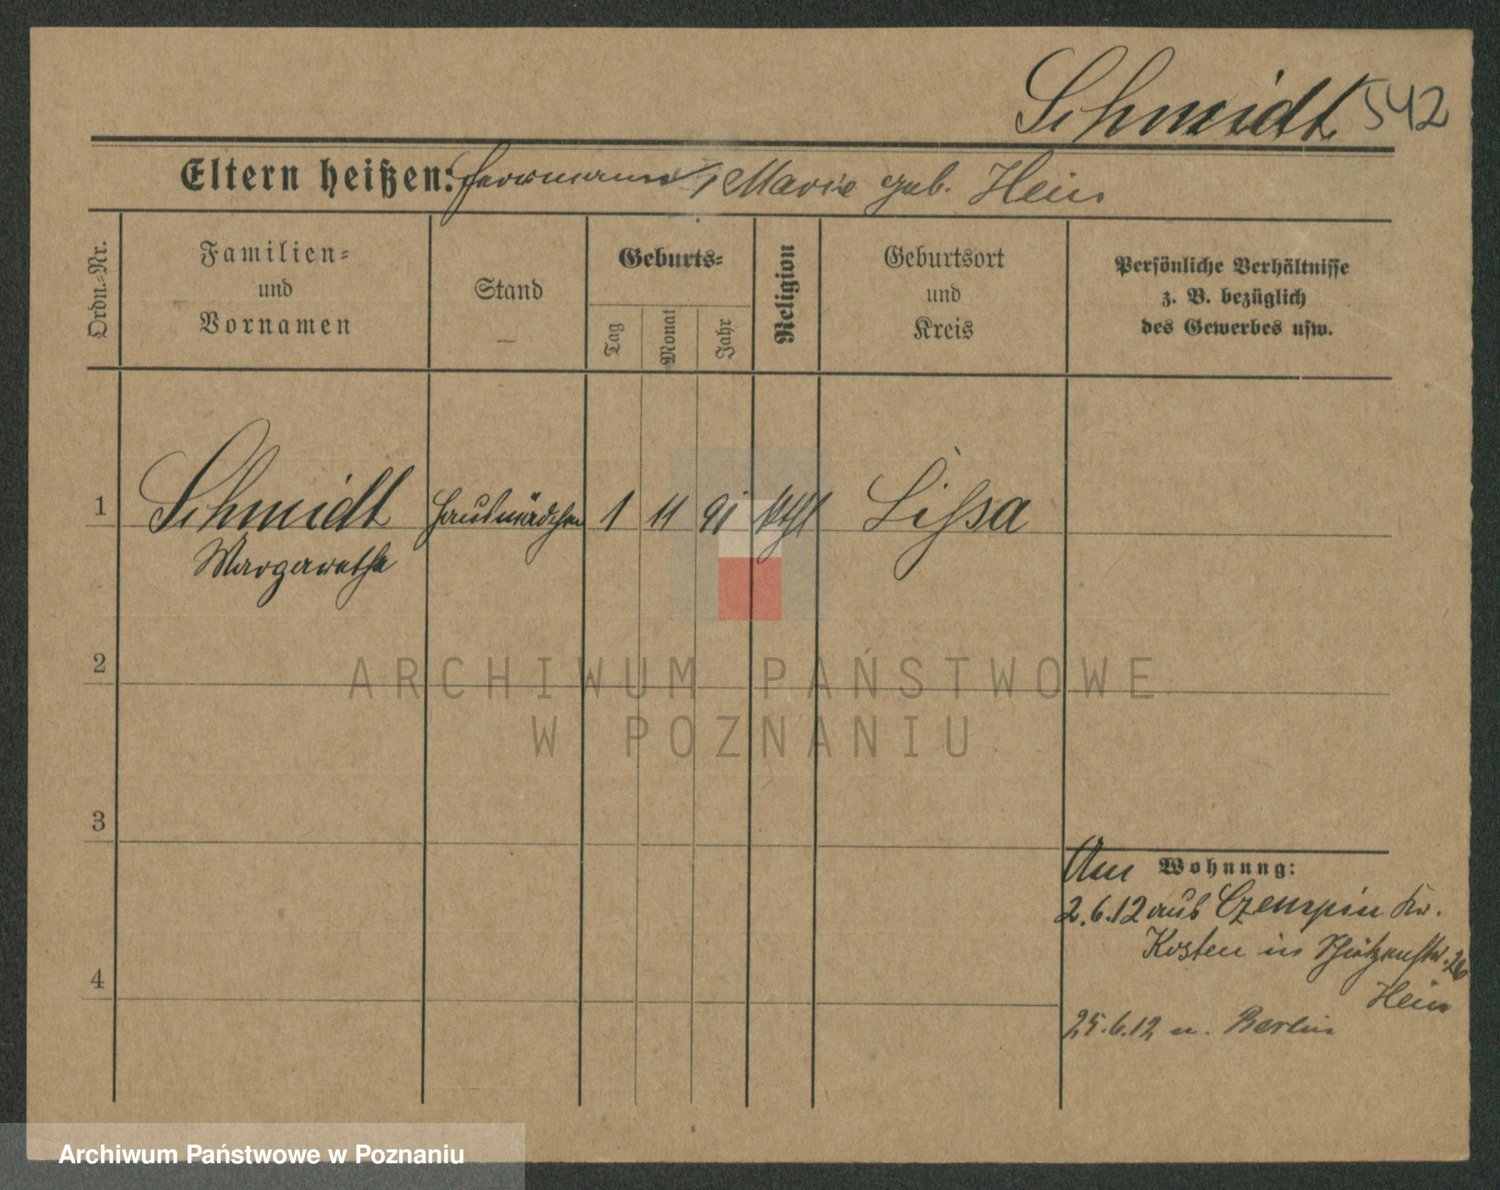 Schmidt 542
Eltern heißen: Herrmann, Marie geb. Hein
Ordn.-Nr.
Familien-
und
Vornamen
Stand
Geburts-
Tag
Monat
Jahr
Religion
Geburtsort
und
Kreis
Persönliche Verhältnisse
z. B. bezüglich
des Gewerbes usw.
1 Schmidt Hausmädchen 1 11 91 kthl Lissa
Margarethe
2
ARCHIWUM PAŃSTWOWE
W POZNANIU
3
Am Wohnung:
2.6.12 aus Czempin Kr.
Kosten in Schützenstr. 26
4
Hein
25.6.12 n. Berlin
Archiwum Państwowe w Poznaniu